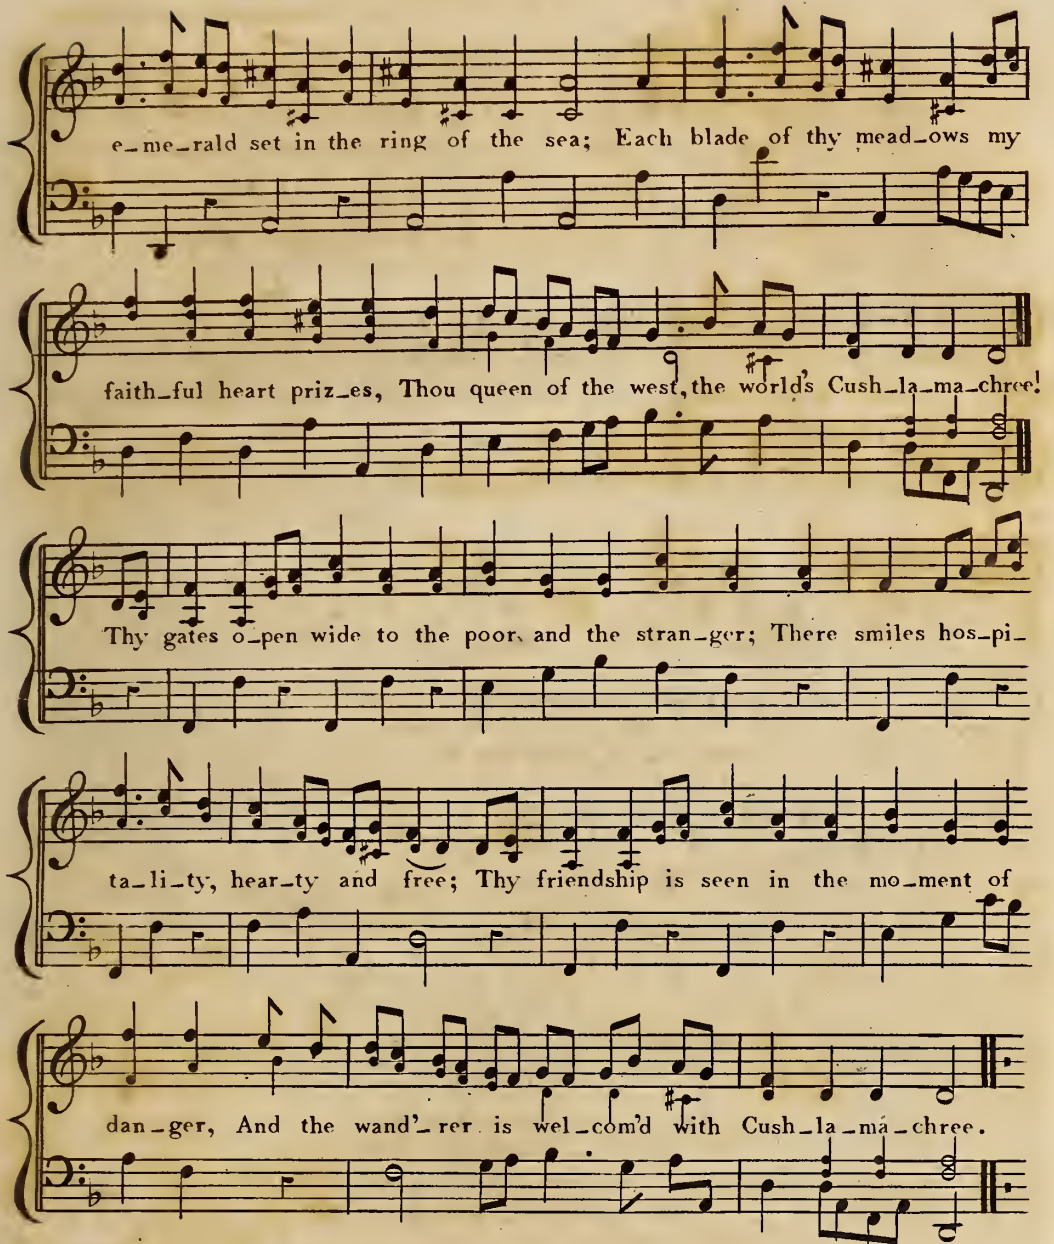 e_me_rald set in the ring of the sea; Each blade of thy mead_ows my
faith_ful heart priz_es, Thou queen of the west, the world's Cush_la_ma_chree!
Thy gates o_pen wide to the poor, and the stran_ger; There smiles hos_pi_
ta_li_ty, hear_ty and free; Thy friendship is seen in the mo_ment of
dan_ger, And the wand'_rer is wel_com'd with Cush_la_ma_chree.